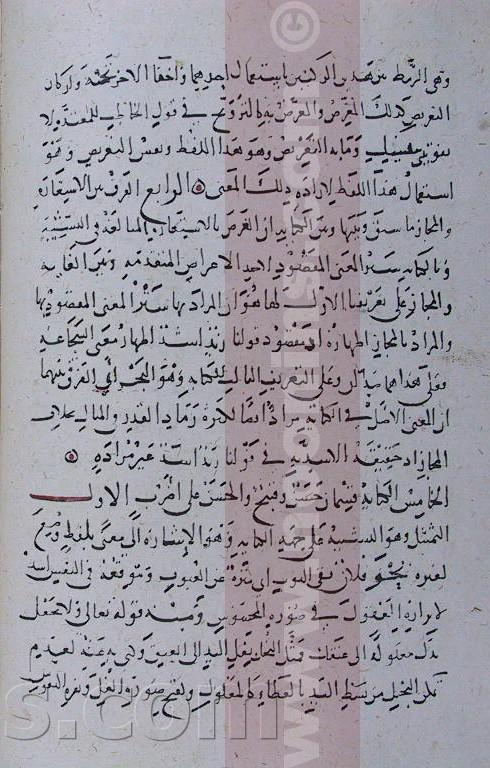 وهى الربط بين هذين الركنين باستعمال احدهما واخفا الاخر تحته واركان
التعريض كذلك المعرض والمعرض به كالتزوج في قول الخاطب للمعتدة لا
تفوتيني بنفسك وما به التعريض وهو هذا اللفظ ونفس التعريض وهو
استعمال هذا اللفظ لارادة ذلك المعنى الرابع الفرق بين الاستعارة
والمجاز ما سبق وبينها وبين الكناية ان الغرض بالاستعارة المبالغة في التشبيه
وبالكناية ستر المعنى المقصود لاحد الاعراض المتقدمة وبين الكناية
والمجاز على تعريفنا الاول لها هو ان المراد بها ستر المعنى المقصود بها
والمراد بالمجاز اظهاره اذ مقصود قولنا زيد اسد اظهار معنى الشجاعة
فعلى هذا هما متباينان وعلى التعريف الثاني للكناية وهو المجراني الفرق بينهما
ان المعنى الاصلي في الكناية مراد ايضا لكثرة رماد القدر والمال بخلاف
المجاز اذ حقيقة الاسدية في قولنا زيد اسد غير مرادة
الخامس الكناية قسمان حسن وقبيح والحسن على اضرب الاول
التمثيل وهو التشبيه على جهة الكناية وهو الاشارة الى معنى بلفظ وضع
لغيره نحو فلان نقي الثوب اي منزه عن العيوب وموقعه في النفس اشد
لابرازه المعقول في صورة المحسوس ومنه قوله تعالى ولا تجعل
يدك مغلولة الى عنقك فمثل البخل بغل اليد الى العنق
تمكن البخيل من بسط اليد بالعطاء كالمغلول ولقبح صورة الغل ونفرة النفوس
www.
s.com